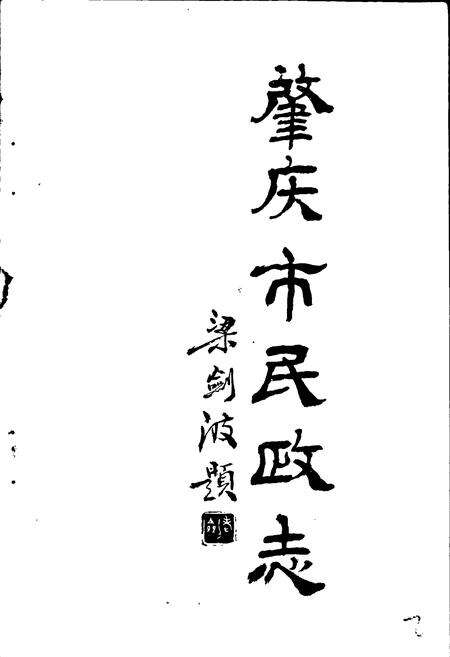 肇庆市民政志
梁劍波題